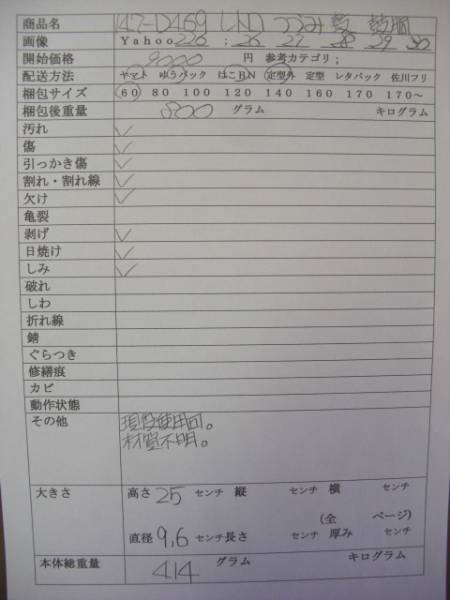 商品名 47-D469 つづみ 鼓 鼓胴
画像 Yahoo 226 ; 26 27 28 29 30
開始価格 9000 円 参考カテゴリ；
配送方法 ヤマト ゆうパック はこBN 定型外 定型 レタパック 佐川フリ
梱包サイズ 60 80 100 120 140 160 170 170～
梱包後重量 800 グラム キログラム
汚れ ✓
傷 ✓
引っかき傷 ✓
割れ・割れ線 ✓
欠け ✓
亀裂
剥げ ✓
日焼け ✓
しみ ✓
破れ
しわ
折れ線
錆
ぐらつき
修繕痕
カビ
動作状態
その他 現役使用可。
材質不明。
大きさ 高さ 25 センチ 縦 センチ 横 センチ
(全 ページ)
直径 9,6 センチ 長さ センチ 厚み センチ
本体総重量 414 グラム キログラム